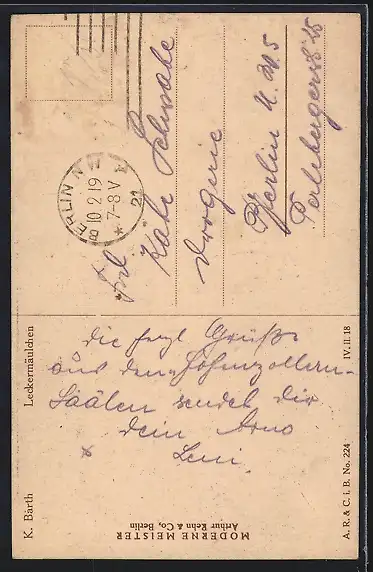 BERLIN NW
10.2.19
*7-8V
21
Frl
Käte Schwabe
Drogerie
Berlin N.W. 5
Perlebergerstr 25
Die herzl Grüße
aus den Hohenzollern-
Säälen sendet Dir
Dein Arno
x Leni
K. Barth
Leckermäulchen
MODERNE MEISTER
Arthur Rehn & Co., Berlin
A. R. & C. i. B. No. 224
IV. II. 18